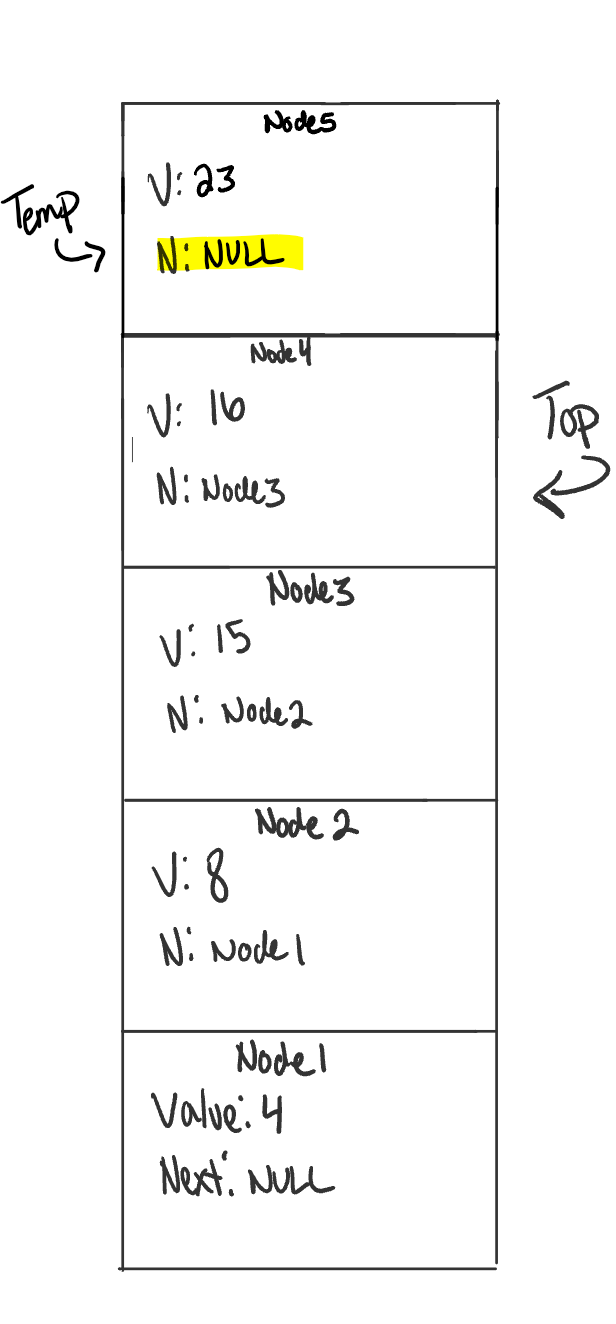 Node5
V: 23
Temp
N: NULL
Node4
V: 16
Top
N: Node3
Node3
V: 15
N: Node2
Node 2
V: 8
N: Node1
Node1
Value: 4
Next: NULL